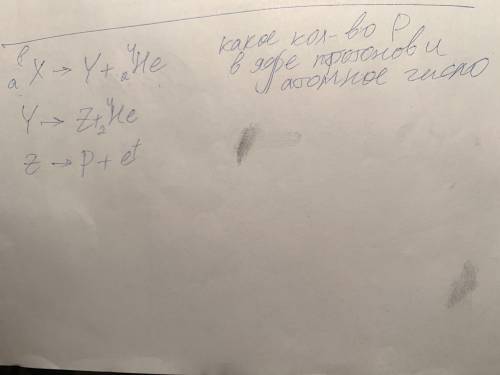 ⁸ₐX → Y + ⁴₂He
Y → Z + ⁴₂He
Z → P + e⁺
какое кол-во P
в ядре протонов и
атомное число